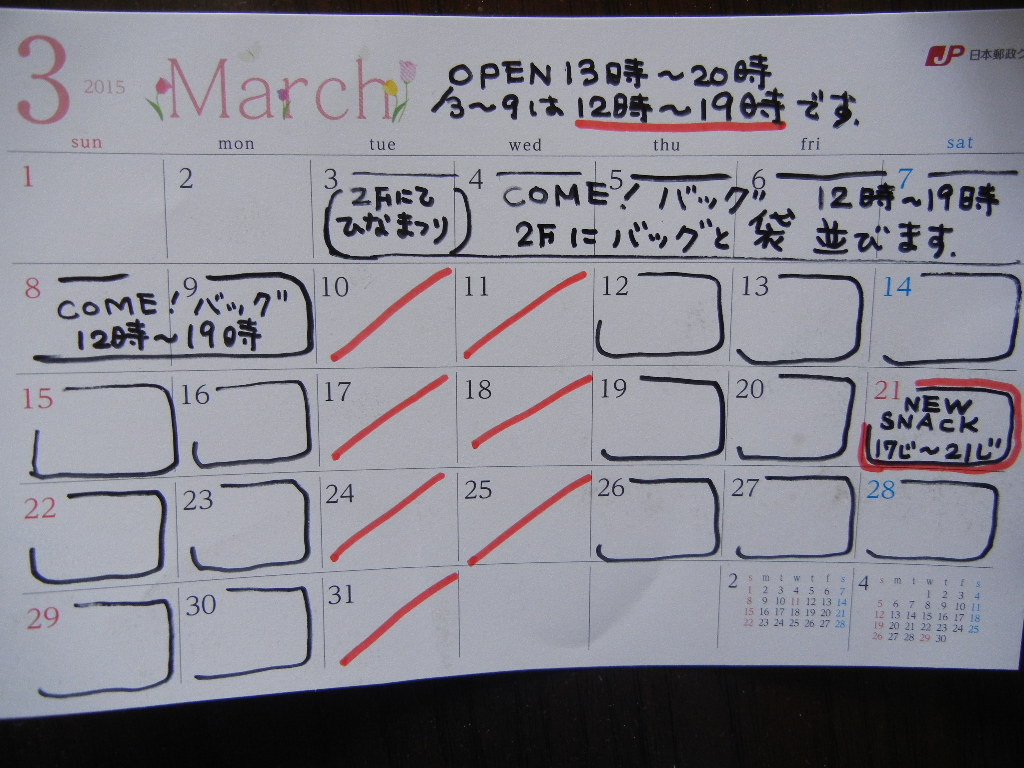 3 2015 March
OPEN 13時〜20時
3〜9は 12時〜19時 です.
JP 日本郵政グ
sun mon tue wed thu fri sat
1 2 3 4 5 6 7
2Fにて
ひなまつり
COME! バッグ 12時〜19時
2Fに バッグと 袋 並びます.
8 9 10 11 12 13 14
COME! バッグ
12時〜19時
15 16 17 18 19 20 21
NEW
SNACK
17じ〜21じ
22 23 24 25 26 27 28
29 30 31
2 s m t w t f s
1 2 3 4 5 6 7
8 9 10 11 12 13 14
15 16 17 18 19 20 21
22 23 24 25 26 27 28
4 s m t w t f s
1 2 3 4
5 6 7 8 9 10 11
12 13 14 15 16 17 18
19 20 21 22 23 24 25
26 27 28 29 30